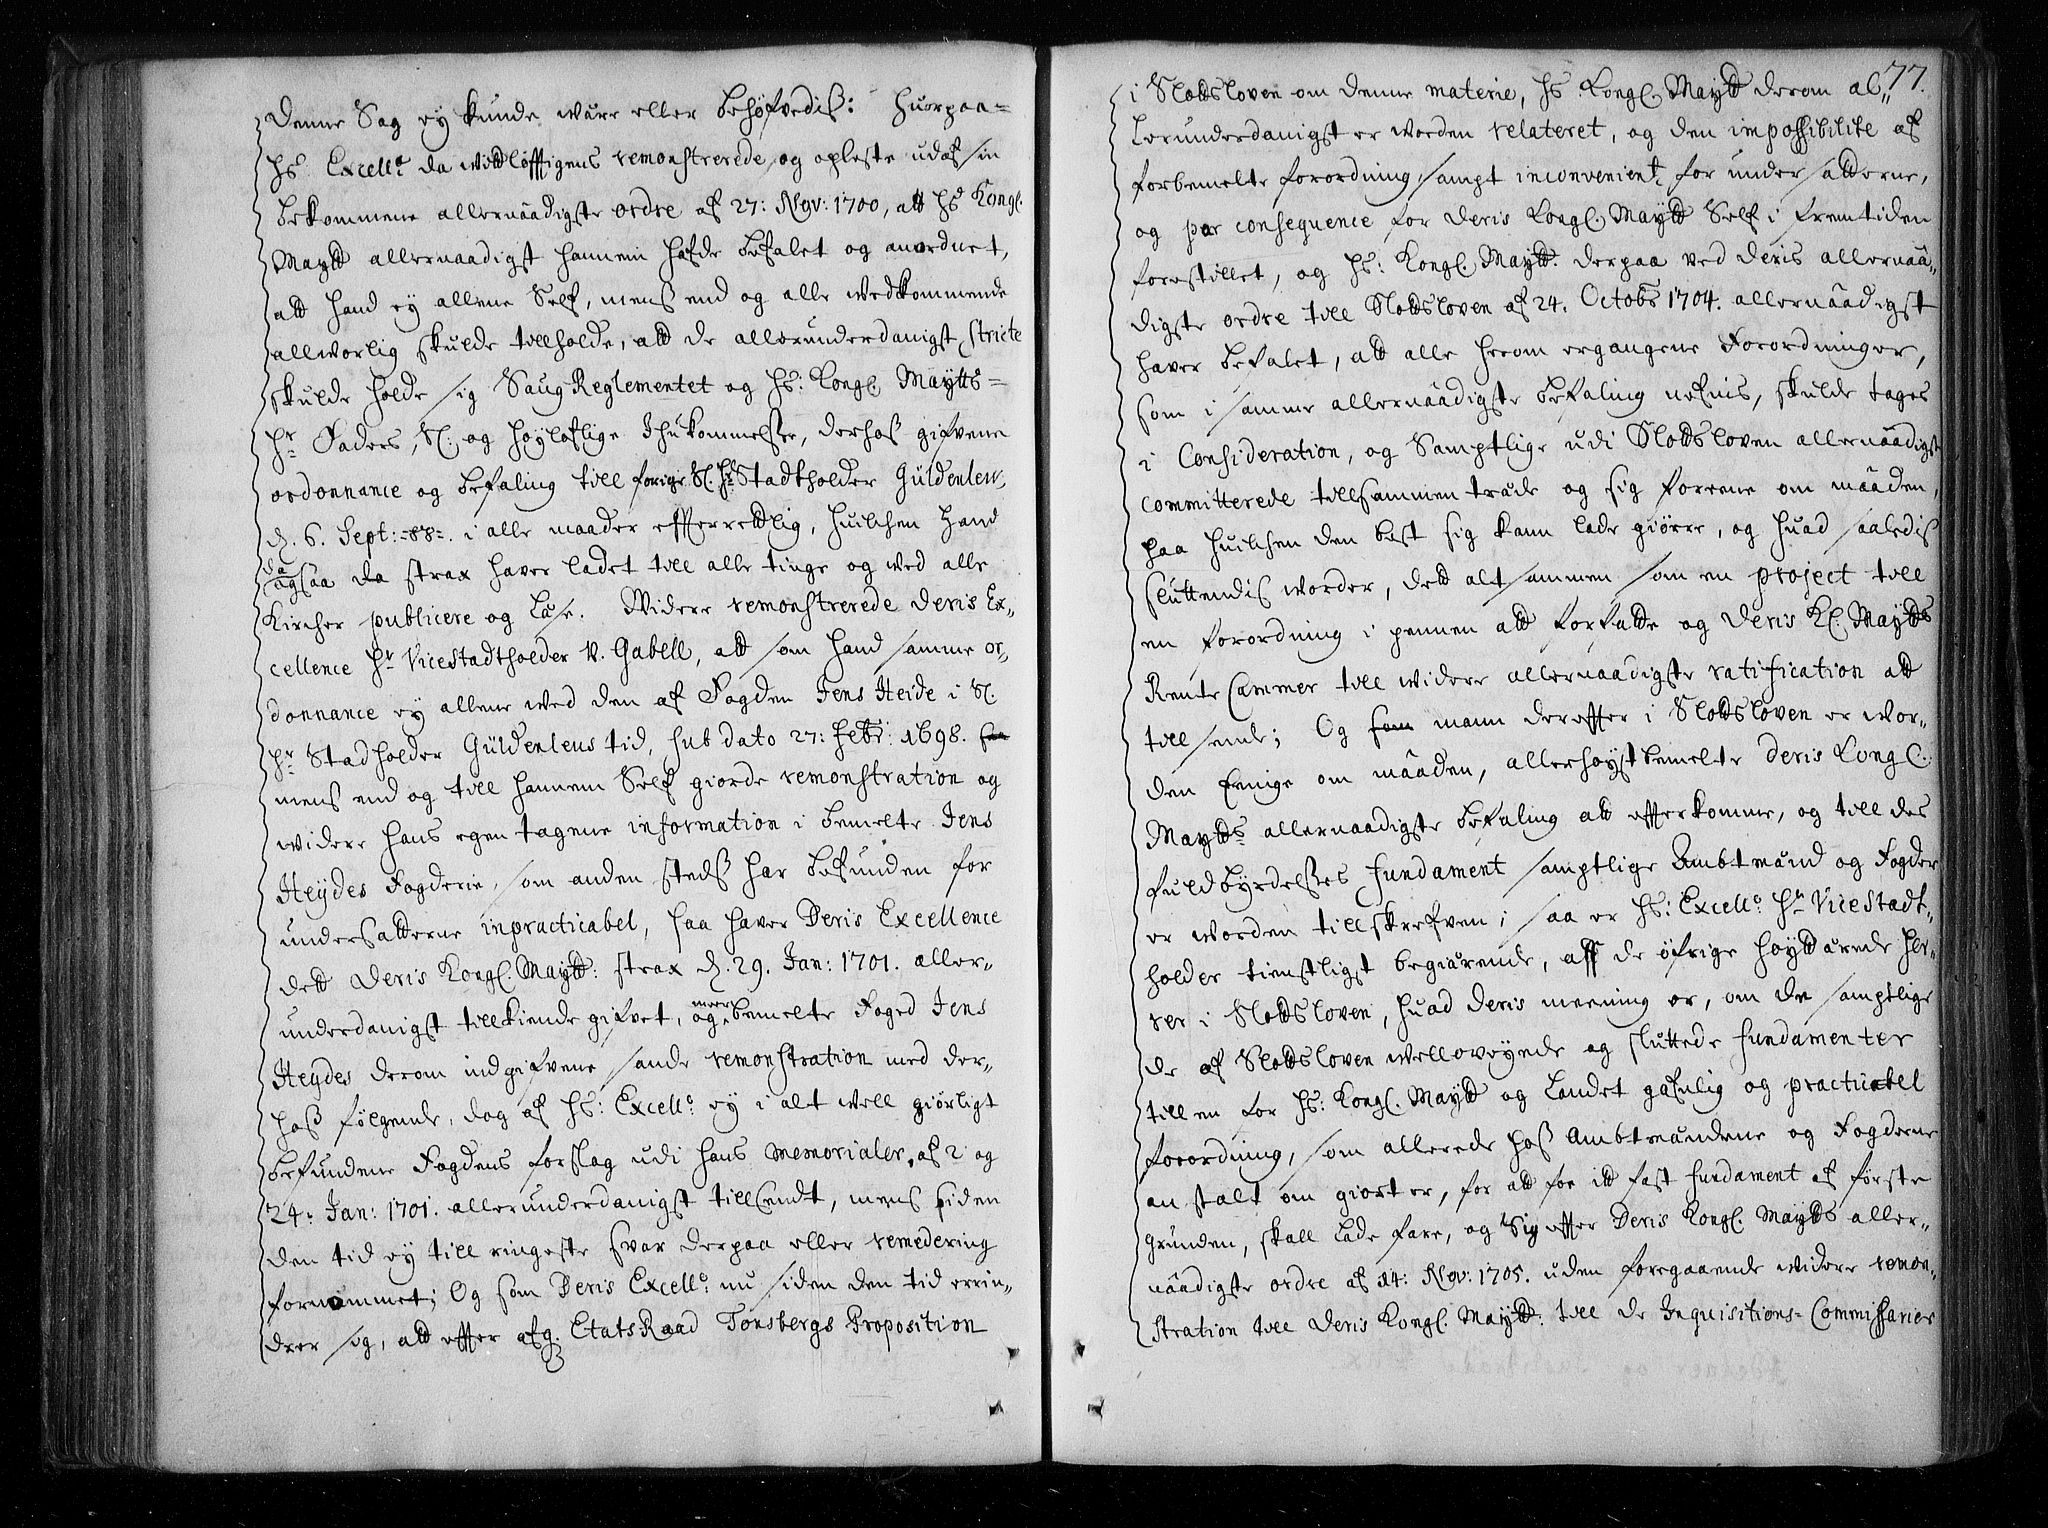 Denne Sag ey kunde være eller behøfvedis: Huorpaa=
Hs. Excell: da widtløfftigens remonstrerede og opleste udaf sin
bekommene allernaadigste ordre af 27: Nov: 1700, att Hs Kongl.
Maytt allernaadigst hannem hafde befalet og anordnet,
att hand ey allene Self, mens end og alle wedkommende
allworlig skulde tillholde, att de allerunderdanigst stricte
skulde holde sig Saug Reglementet og Hs: Kongl. Maytts=
Hr Faders, Sl. og Høyloflige Ihukommelse, derhos gifvene
ordonnance og befaling till forige Sl. Hr Stadtholder Güldenlew,
d. 6. Sept: 88. i alle maader efferrettlig, huilchen Hand
da ogsaa da strax hafver ladet till alle tinge og wed alle
Kircher publicere og læse. Widere remonstrerede Deris Ex-
cellence Hr Vicestadtholder v. Gabell, att som hand samme or-
donnance ey allene wed den af Fogden Jens Heide i Sl.
Hr Stadholder Güldenleus tid, sub dato 27: Febr: 1698.
mens end og till hannem Self giorde remonstration og
widere hans egen tagene information i bemelte Jens
Heydes Fogderie, som anden steds har befunden for
undersatterne inpracticabel, saa haver Deris Excellence
dett Deris Kongl. Maytt: strax d. 29. Jan: 1701. aller-
underdanigst tillkiende gifvet, og meer bemelte Foged Jens
Heydes derom indgifvene sande remonstration med der-
hos følgende, dog af Hs: Excell: ey i alt well giørligt
befundene Fogdens forslag udi hans Memorialer, af 2 og
24: Jan: 1701. allerunderdanigst tillsendt, mens siden
den tid ey till ringeste svar derpaa eller remedering
fornimmet; Og som Deris Excell: nu siden den tid errin-
drer sig, att effter afg. Etats Raad Tonsbergs Proposition
77.
i Slottsloven om denne materie, Hs. Kongl. Maytt derom al-
lerunderdanigst er worden relateret, og den impossibilite af
forbemelte forordning, sampt inconvenient, for undersatterne,
og per consequence for Deris Kongl. Maytt Self i fremtiden
forestillet, og Hs: Kongl. Maytt. derpaa ved Deris allernaa-
digste ordre till Slottsloven af 24. Octobr 1704. allernaadigst
haver befalet, att alle herom ergangene Forordninger,
som i samme allernaadigste befaling nefnis, skulde tages
i Consideration, og Samptlige udi Slottsloven allernaadigst
committerede tillsammen træde og sig forene om maaden,
paa huilchen den best sig kann lade giørre, og huad saaledis
sluttendis worder, dett alt sammen som en project till
en forordning i pennen att forfatte og Deris Kl. Maytts
Rente Cammer till widere allernaadigste ratification att
till sende; Og som mann dereffter i Slottsloven er wor-
den Eenige om maaden, allerhøystbemelte Deris Kongl.
Maytts allernaadigste befaling att effterkomme, og till des
fuldbyrdelses fundament samptlige Ambtmænd og Fogder
er worden tillskrefven; saa er Hs: Excell: Hr Vicestadt-
holder tienstligst begiærende, aff de øfrige høyttærede Her-
rer i Slottsloven, huad Deris meening er, om de samptlige
de af Slottsloven welloveynde og sluttede fundamenter
till en for Hs: Kongl. Maytt og Landet gafnlig og practicabel
forordning, som allerede hos Ambtmændene og Fogderne
anstalt om giort er, for att faa itt fast fundament af første
grunden, skall lade fare, og Sig effter Deris Kongl. Maytts aller-
naadigste ordre af 14: Nov: 1705. uden foregaaende widere remon-
stration till Deris Kongl. Maytt: till de Inquisitions-Commissarier